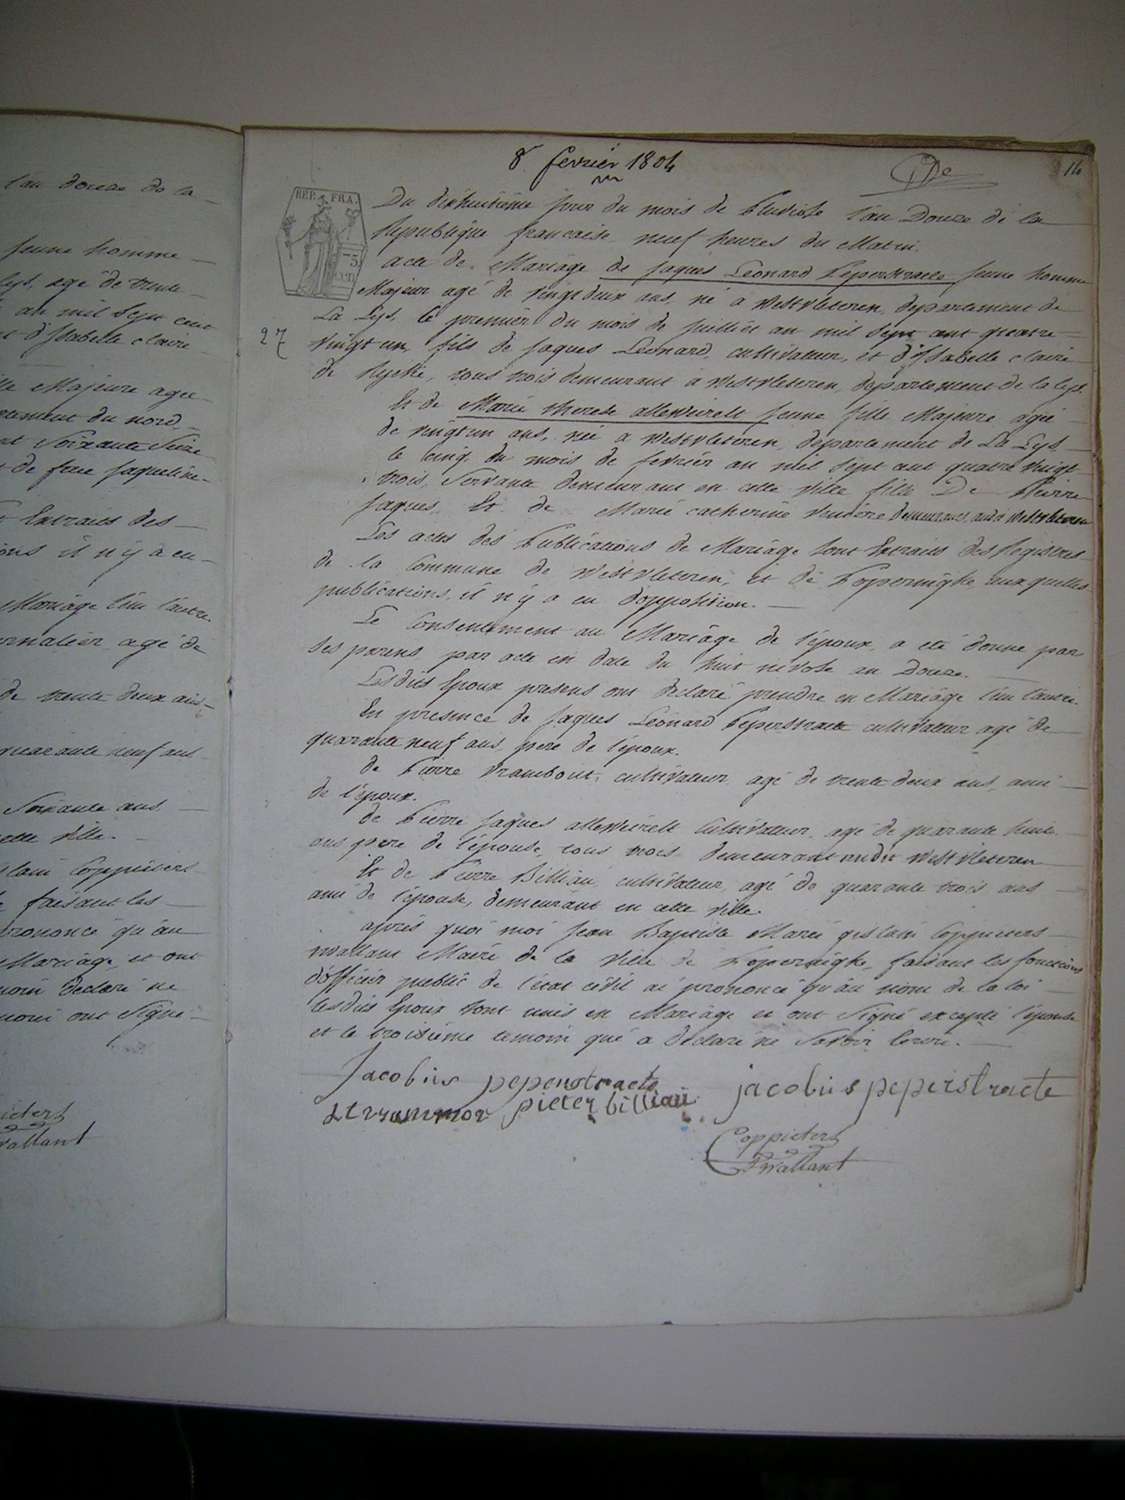 l'an douze de la
jeune homme
Lys, agé de trente
an mil sept cent
et d'Isabelle claire
fille Majeure agée
département du nord
cent Soixante Seize
et de face jaqueline
Extraits des
il n'y a eu
Mariage l'un l'autre.
journalier agé de
de trente deux ans
quarante neuf ans
Soixante ans
cette ville.
gislain Coppieters
faisant les
prononcé qu'au
Mariage, et ont
temoin declaré ne
ont Signé
Coppieters
Twallant
8 fevrier 1804
14
REP. FRA.
27
Du dixhuitième jour du mois de Pluviose l'an Douze de la
Republique francaise neuf heures du Matin.
acte de Mariage de jaques Leonard Peperstraete jeune homme
Majeur agé de vingt deux ans, né à Westvleteren, departement de
La Lys, le premier du mois de juilliet an mil sept cent quatre
vingt un, fils de jaques Leonard, cultivateur, et d'Isabelle claire
de Rycke, tous trois demeurant à Westvleteren, departement de la Lys.
Et de Marie therese alleweirelt jeune fille Majeure agée
de vingt un ans, née à Westvleteren, departement de La Lys
le cinq du mois de fevrier an mil sept cent quatre vingt
trois, Servante demeurant en cette ville fille De Pierre
jaques, Et de Marie catherine demeurans audit Westvleteren
Les actes des Publications de Mariage Sont Extraits des Registres
de la Commune de Westvleteren, et de Poperinighe, auxquelles
publications, il n'y a eu d'opposition.
Le Consentement au Mariage de l'époux, a eté donné par
ses parens par acte en date du huit nivose an Douze.
Lesdits Epoux presens ont declaré prendre en Mariage l'un l'autre.
En presence de jaques Leonard Peperstraete cultivateur agé de
quarante neuf ans, pere de l'époux.
de Pierre cultivateur agé de trente deux ans, ami
de l'époux.
De Pierre jaques alleweirelt Cultivateur, agé de quarante huit
ans pere de l'épouse, tous trois demeurant audit Westvleteren
Et de Pierre Billiau, cultivateur, agé de quarante trois ans
ami de l'épouse, demeurant en cette ville.
après quoi moi jean Baptiste Marie gislain Coppieters
twallant Maire de la Ville de Poperinighe, faisant les fonctions
d'officier public de l'état civil ai prononcé qu'au nom de la loi
lesdits Epoux sont unis en Mariage et ont Signé excepté l'épouse
et le troisième temoin qui a déclaré ne Savoir Ecrire.
Jacobus peperstraete
jacobus peperstraete
pieter billiau
Coppieters
Twallant